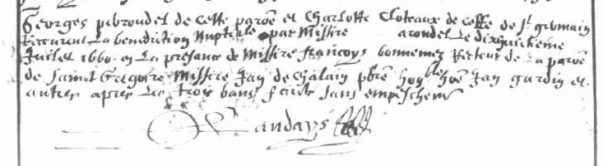 Georges piroudel de cette paroe et Charlotte Cloteaux de celle de st germain
Recurent La benediction Nuptiale par Missire arondel Le dixhuictieme
Juillet 1660 en La presance de Missire francoys bonnemez Recteur de La paroe
de Saint Gregoire Missire Jan de chalain pbre hoble hoe Jan gardin et
autres apres Les trois bans faicts sans empeschemt
Candays